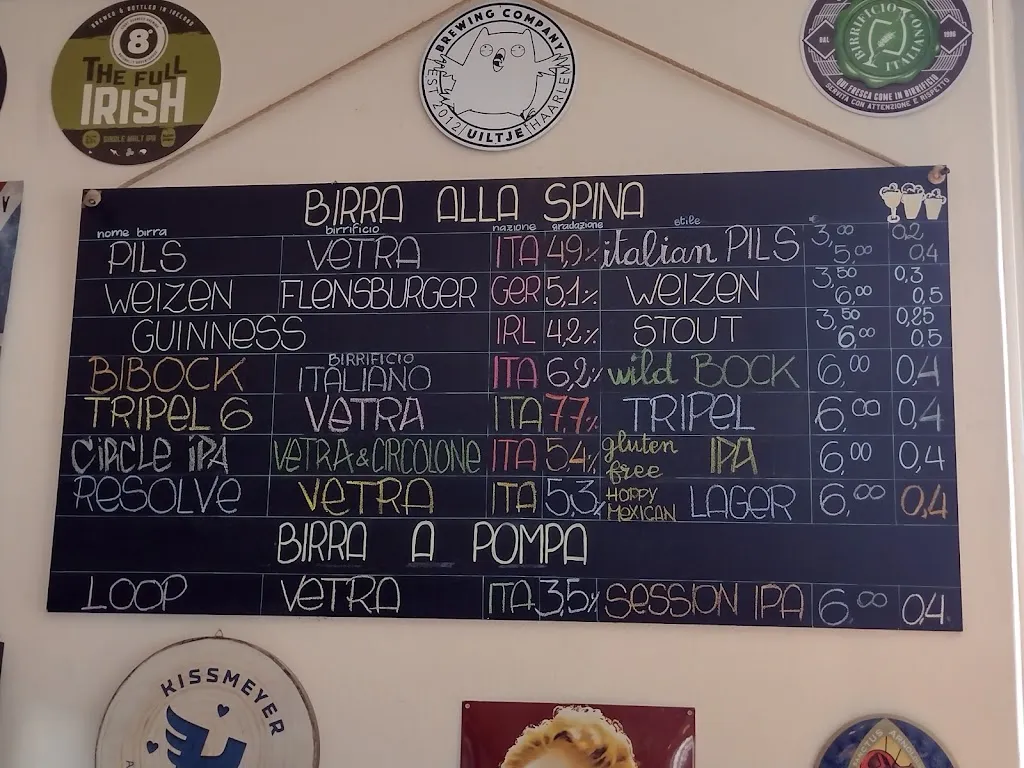 BREWED & BOTTLED IN IRELAND
8
THE FULL
IRISH
SINGLE MALT IPA
BREWING COMPANY
EST 2012 UILTJE HAARLEM
DAL 1996
SERVITA CON ATTENZIONE E RISPETTO
BIRRA ALLA SPINA
nome birra birrificio nazione gradazione stile €
PILS VETRA ITA 4,9% italian PILS 3,00 0,2
5,00 0,4
WEIZEN FLENSBURGER GER 5,1% WEIZEN 3,50 0,3
6,00 0,5
GUINNESS IRL 4,2% STOUT 3,50 0,25
6,00 0,5
BIBOCK BIRRIFICIO ITALIANO ITA 6,2% wild BOCK 6,00 0,4
TRIPEL 6 VETRA ITA 7,7% TRIPEL 6,00 0,4
CIRCLE IPA VETRA & CIRCOLONE ITA 5,4% gluten free IPA 6,00 0,4
RESOLVE VETRA ITA 5,3% HOPPY MEXICAN LAGER 6,00 0,4
BIRRA A POMPA
LOOP VETRA ITA 3,5% SESSION IPA 6,00 0,4
KISSMEYER